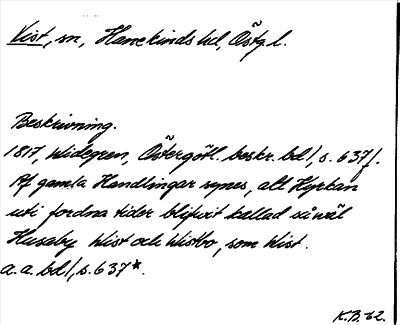 Vist, sn, Hanekinds hd, Östg. l.
Beskrivning.
1817, Widegren, Östergötl. beskr. bd 1, s. 637 f.
Af gamla Handlingar synes, att Kyrkan
uti fordna tider blifwit kallad såwäl
Husaby Wist och Wistbo, som Wist.
a. a. bd 1, s. 637*.
K.B. 62.